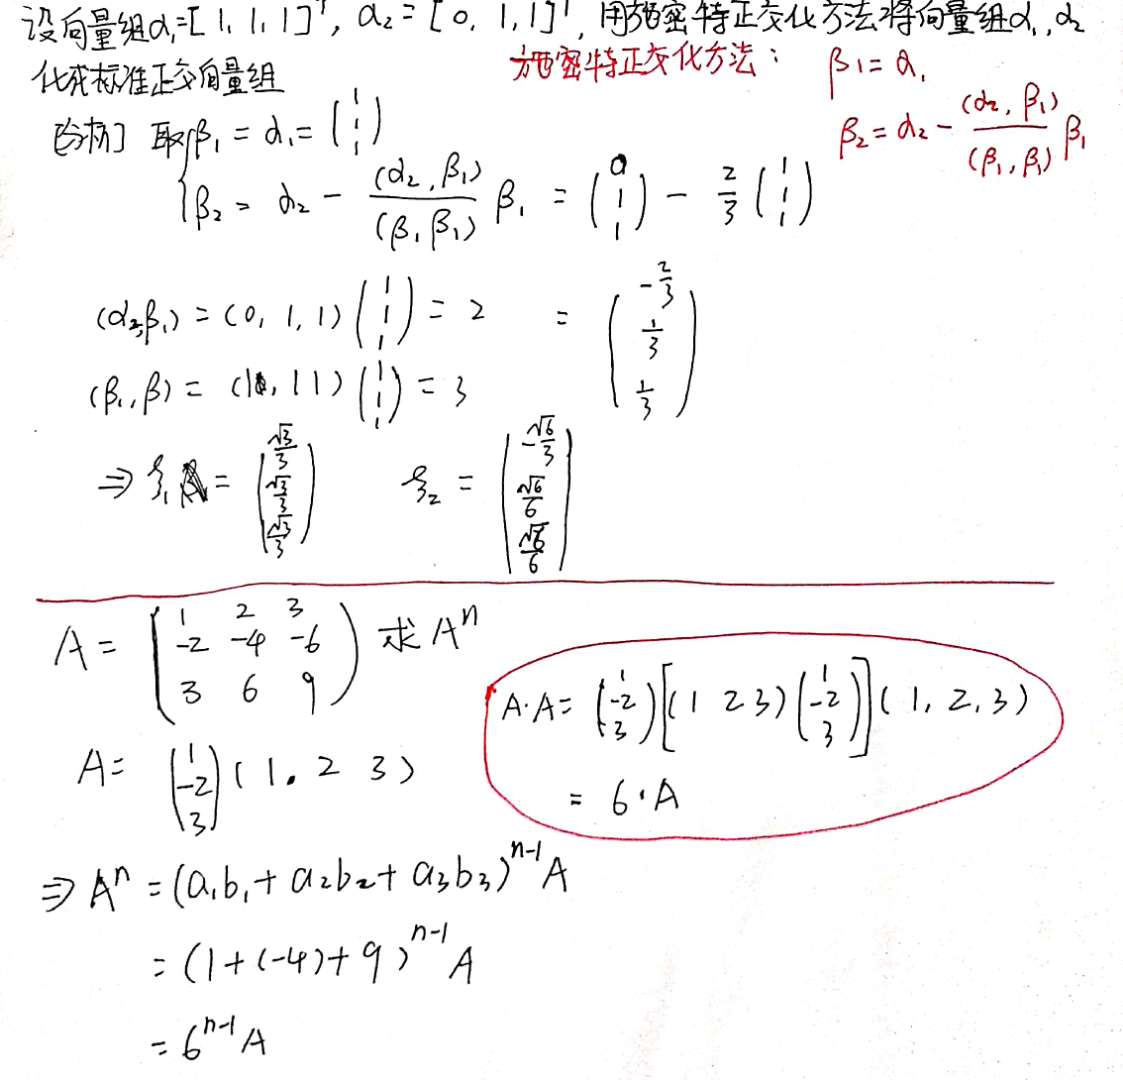 设向量组α₁=[1, 1, 1]ᵀ, α₂=[0, 1, 1]ᵀ, 用施密特正交化方法将向量组α₁, α₂
化成标准正交向量组
施密特正交化方法: β₁=α₁
β₂=α₂-(α₂, β₁)/(β₁, β₁) β₁
[分析] 取{β₁=α₁=(1 1 1)
β₂=α₂-(α₂, β₁)/(β₁β₁) β₁=(0 1 1)-2/3(1 1 1)
(α₂,β₁)=(0, 1, 1)(1 1 1)=2 =(-2/3 1/3 1/3)
(β₁, β)=(1, 1 1)(1 1 1)=3
⇒ξ₁=(√3/3 √3/3 √3/3) ξ₂=(-√6/3 √6/6 √6/6)
A=(1 2 3 -2 -4 -6 3 6 9) 求Aⁿ
A=(1 -2 3)(1. 2 3)
A·A=(1 -2 3)[(1 2 3)(1 -2 3)](1, 2, 3)
=6·A
⇒Aⁿ=(a₁b₁+a₂b₂+a₃b₃)ⁿ⁻¹A
=(1+(-4)+9)ⁿ⁻¹A
=6ⁿ⁻¹A